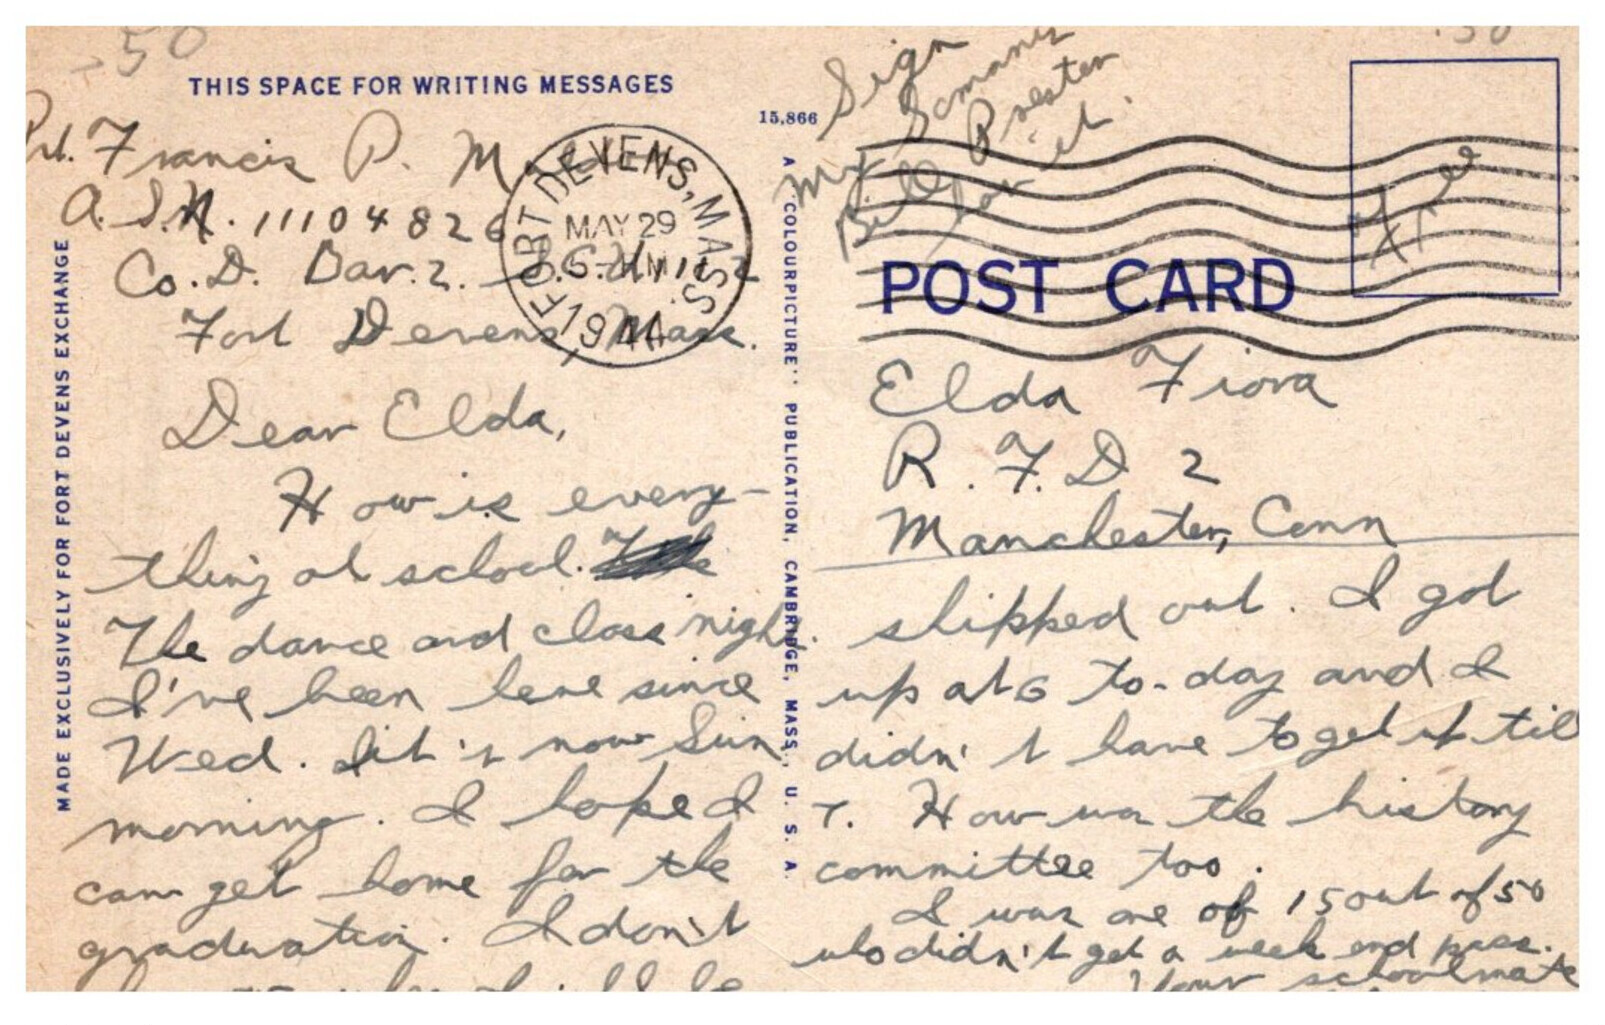 THIS SPACE FOR WRITING MESSAGES
Pvt. Francis P. M
A.S.N. 11104826
Co. D. Bar. 2.
Fort Devens, Mass.
Dear Elda,
How is every-
thing at school.
The dance and class night.
I've been here since
Wed. It's now Sun.
morning. I hope I
can get home for the
graduation. I don't
MADE EXCLUSIVELY FOR FORT DEVENS EXCHANGE
FORT DEVENS, MASS
MAY 29
1944
15,866
A "COLOURPICTURE" PUBLICATION, CAMBRIDGE, MASS., U. S. A.
Sign
My
Bill Preston
has it.
Free
POST CARD
Elda Fiora
R. F. D 2
Manchester, Conn
shipped out. I got
up at 6 to-day and I
didn't have to get up till
7. How was the history
committee too.
I was one of 15 out of 50
who didn't get a week end pass.
Your schoolmate
50